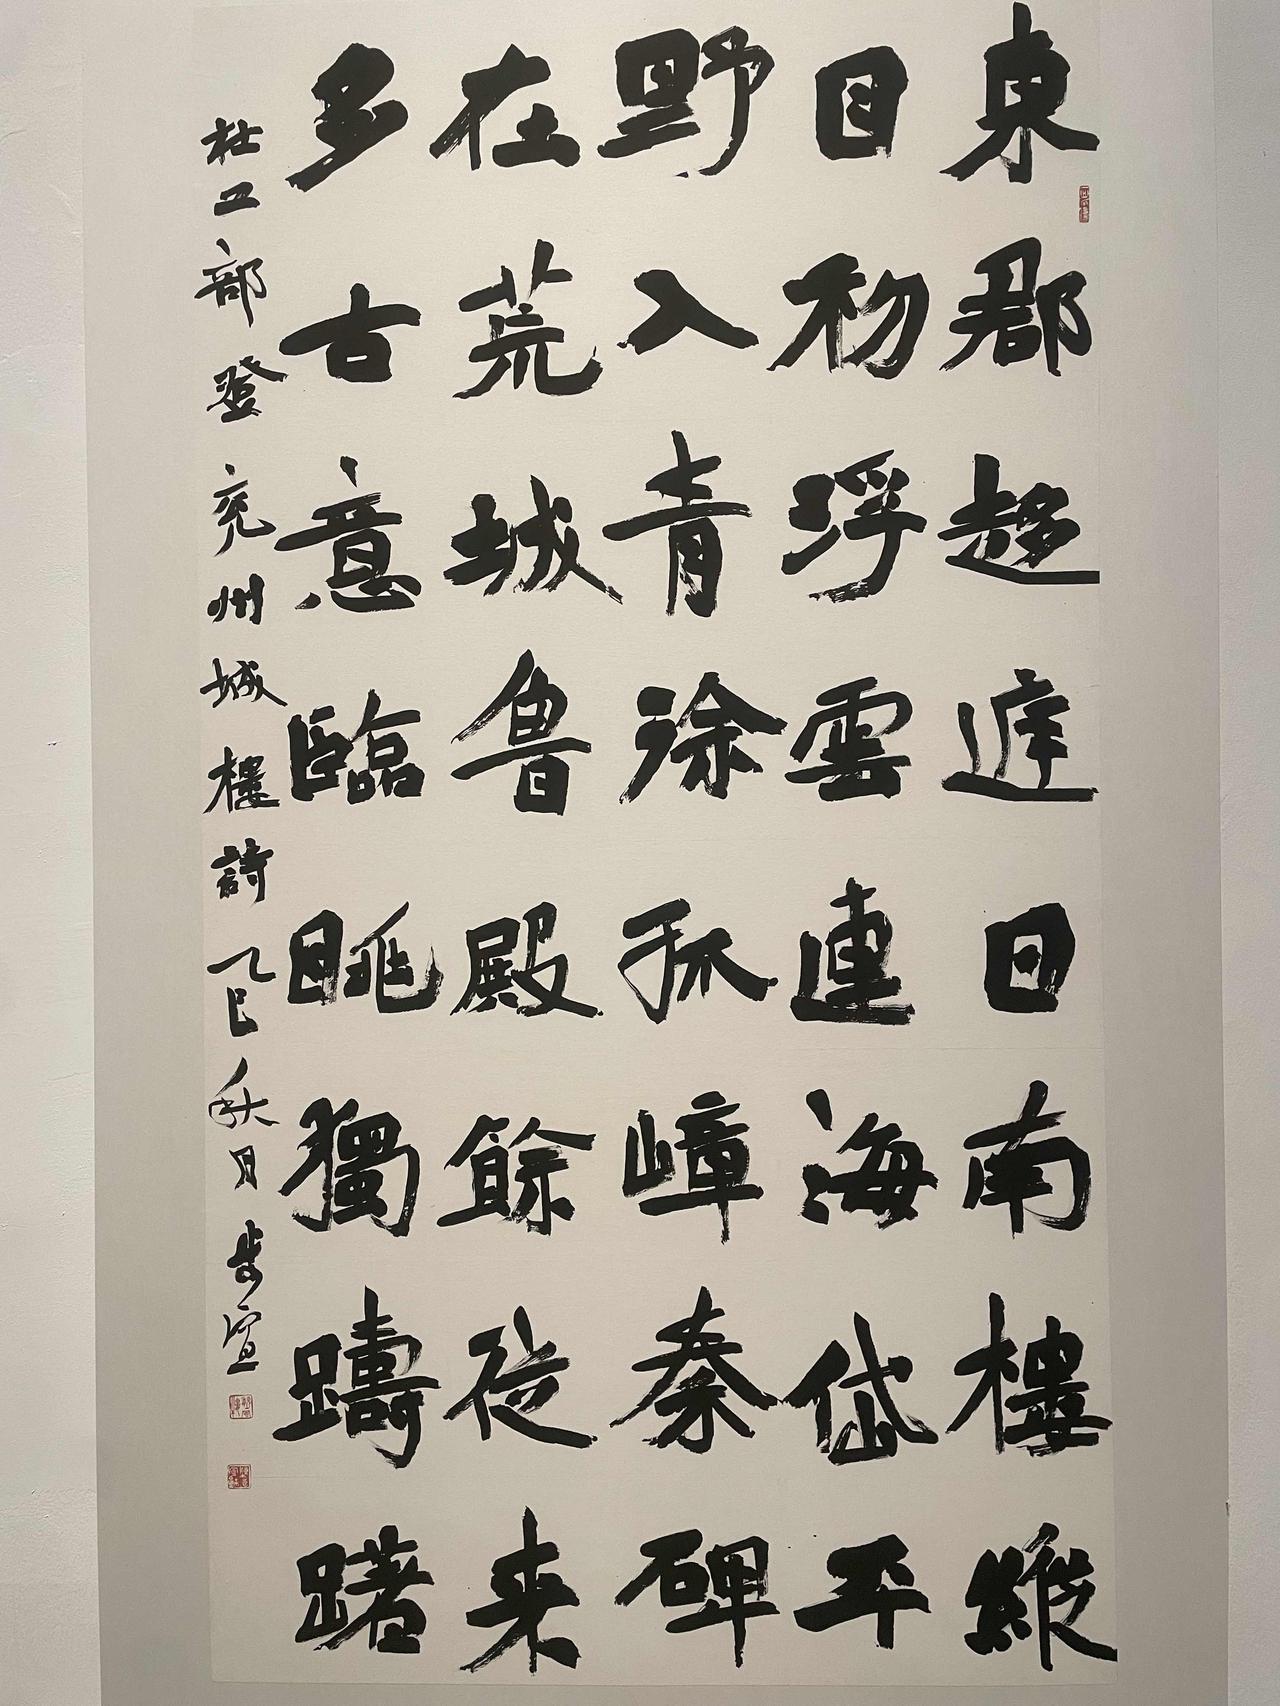 東郡趍庭日南樓縱
目初浮雲連海岱平
野入青徐孤嶂秦碑
在荒城魯殿餘從來
多古意臨眺獨躊躇
杜工部登兖州城樓詩乙巳秋月步宣